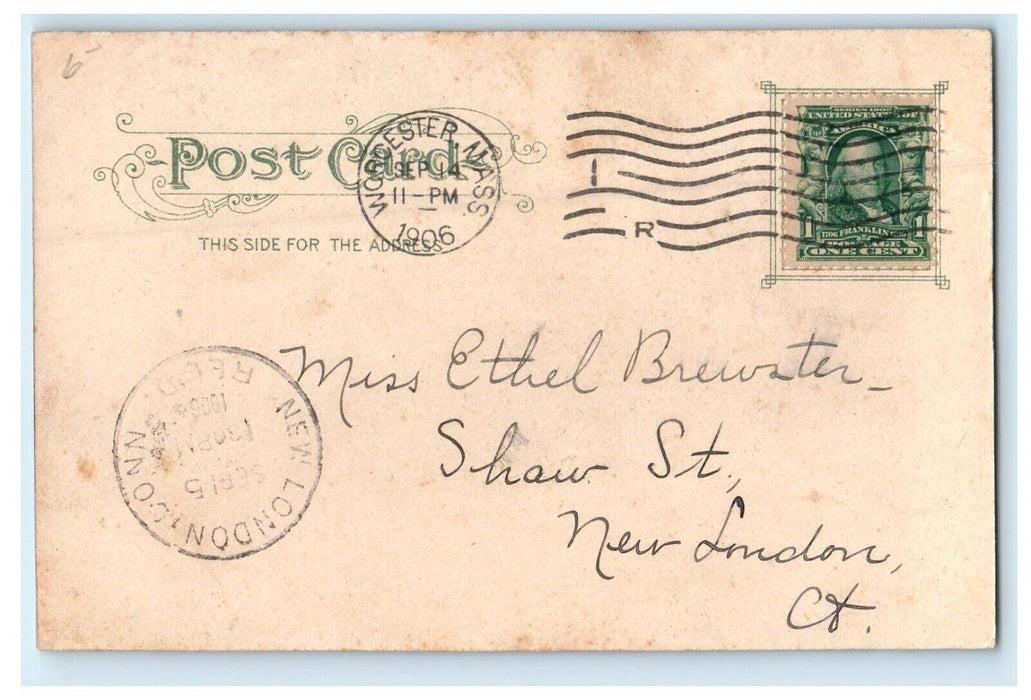 6
Post Card
THIS SIDE FOR THE ADDRESS
WORCESTER, MASS.
SEP 14
11-PM
1906
1
R
SERIES 1902
UNITED STATES OF
AMERICA
1706 FRANKLIN 1790
1 POSTAGE 1
ONE CENT
NEW LONDON, CONN.
SEP 15
1 30 PM
1906
REC'D
Miss Ethel Brewster
Shaw St.,
New London,
Ct.